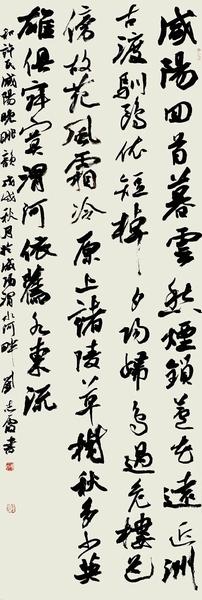 咸陽回首暮雲愁煙鎖遠近洲
古渡馴鷗依短棹夕陽歸鳥過危樓
傍故苑風霜冷原上諸陵草樹秋多少英
雄俱寂寞渭河依舊水東流
和許氏咸陽晚眺韻戊戌秋月於咸陽渭水河畔劉志書